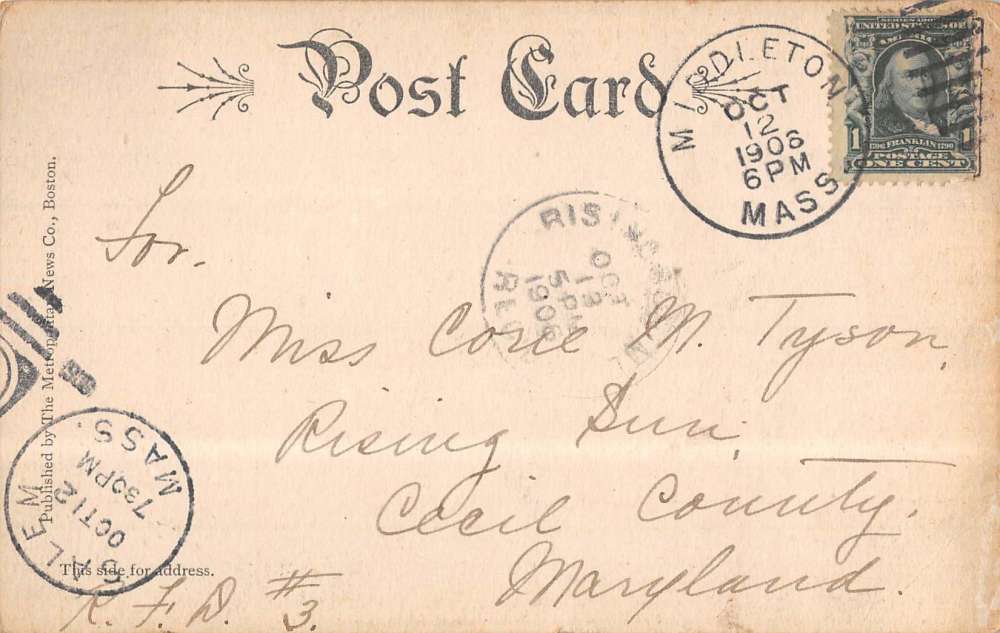 Post Card
MIDDLETON
OCT
12
1906
6 PM
MASS
SERIES 1902
UNITED STATES OF
AMERICA
1 1
1706 FRANKLIN 1790
POSTAGE
ONE CENT
For.
RISING SUN
OCT
13
5 PM
1906
Miss Corie M. Tyson,
Rising Sun,
Cecil County.
Maryland.
R. F. D. #3.
Published by The Metropolitan News Co., Boston.
SALEM
OCT 12
730 PM
MASS.
This side for address.